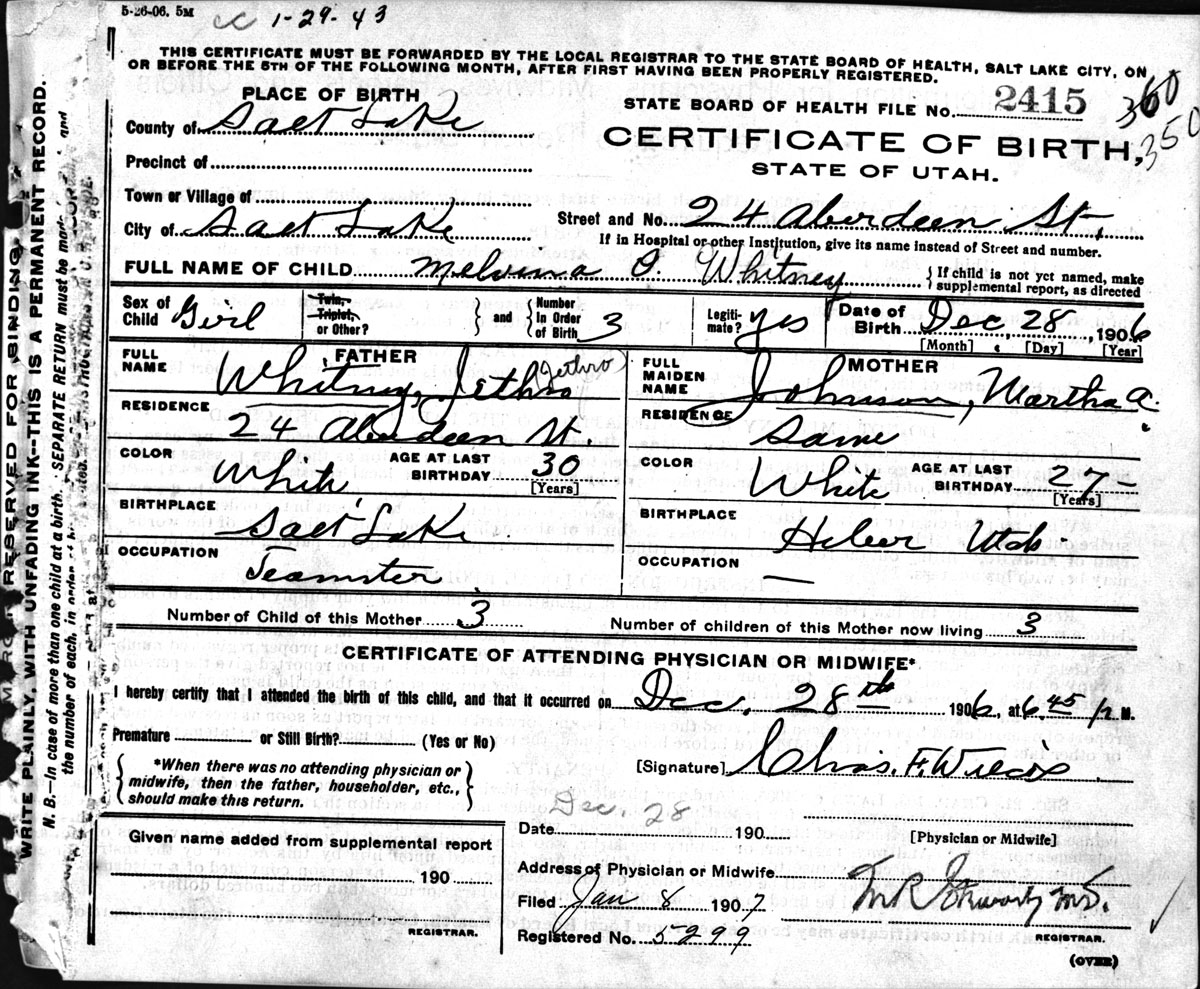 5-26-06. 5M
cc 1-29-43
THIS CERTIFICATE MUST BE FORWARDED BY THE LOCAL REGISTRAR TO THE STATE BOARD OF HEALTH, SALT LAKE CITY, ON
OR BEFORE THE 5TH OF THE FOLLOWING MONTH, AFTER FIRST HAVING BEEN PROPERLY REGISTERED.
PLACE OF BIRTH
STATE BOARD OF HEALTH FILE No. 2415
360
350
County of Salt Lake
CERTIFICATE OF BIRTH,
STATE OF UTAH.
Precinct of
Town or Village of
Street and No. 24 Aberdeen St.
City of Salt Lake
If in Hospital or other Institution, give its name instead of Street and number.
FULL NAME OF CHILD Melvina O. Whitney
{ If child is not yet named, make
supplemental report, as directed
Sex of Child Girl
Twin, Triplet, or Other?
{ and }
Number In Order of Birth 3
Legiti-mate? yes
Date of Birth Dec 28, 1906
[Month] [Day] [Year]
FATHER
FULL NAME Whitney, Jethro (Jethro)
RESIDENCE
24 Aberdeen St.
COLOR White
AGE AT LAST BIRTHDAY 30
[Years]
BIRTHPLACE
Salt Lake
OCCUPATION
Teamster
MOTHER
FULL MAIDEN NAME Johnson, Martha A.
RESIDENCE
Same
COLOR White
AGE AT LAST BIRTHDAY 27-
[Years]
BIRTHPLACE
Heber Utah
OCCUPATION —
Number of Child of this Mother 3
Number of children of this Mother now living 3
CERTIFICATE OF ATTENDING PHYSICIAN OR MIDWIFE*
I hereby certify that I attended the birth of this child, and that it occurred on Dec. 28th 1906, at 6.45 P. M.
Premature or Still Birth? (Yes or No)
{ *When there was no attending physician or
midwife, then the father, householder, etc.,
should make this return. }
[Signature] Chas. F. Wilcox
Dec. 28
Date 190
[Physician or Midwife]
Given name added from supplemental report
190
REGISTRAR.
Address of Physician or Midwife
Filed Jan 8 1907
Registered No. 5299
M.D.
REGISTRAR.
(OVER)
MARGIN RESERVED FOR BINDING
WRITE PLAINLY, WITH UNFADING INK--THIS IS A PERMANENT RECORD.
N. B.—In case of more than one child at a birth, a SEPARATE RETURN must be made
the number of each, in order